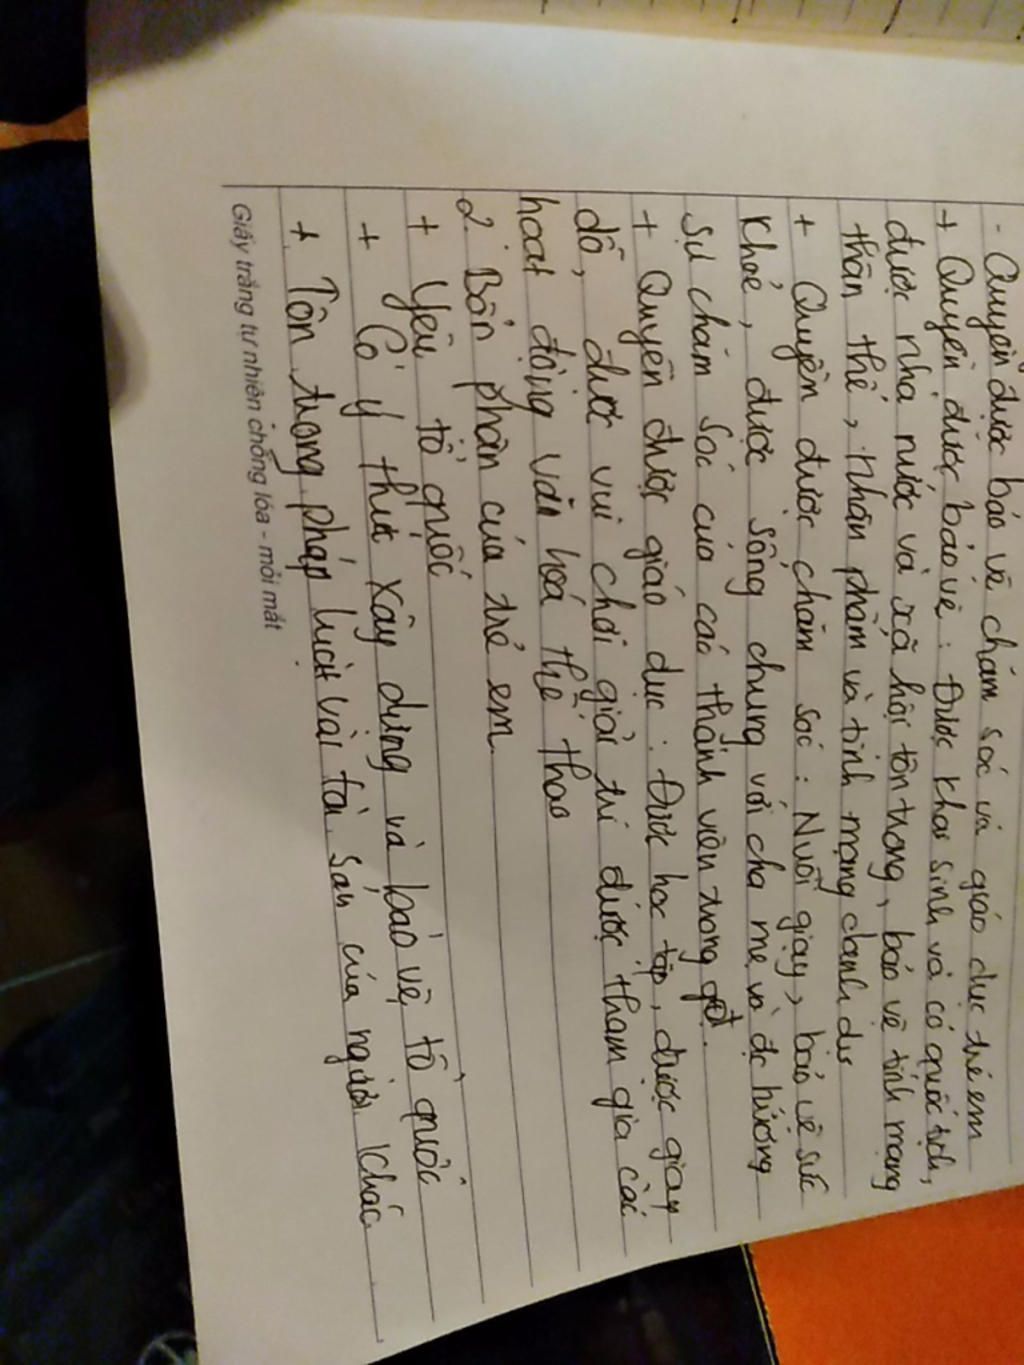 - Quyền được bảo vệ chăm sóc và giáo dục trẻ em
+ Quyền được bảo vệ : Được khai sinh và có quốc tịch,
được nhà nước và xã hội tôn trọng, bảo vệ tính mạng
thân thể, nhân phẩm và tính mạng danh dự
+ Quyền được chăm sóc : Nuôi giạy, bảo vệ sức
khoẻ, được sống chung với cha mẹ và đc hưởng
sự chăm sóc của các thành viên trong gđ.
+ Quyền được giáo dục : Được học tập, được giạy
dỗ, được vui chơi giải trí được tham gia các
hoạt động văn hoá thể thao
2. Bổn phận của trẻ em
+ Yêu tổ quốc
+ Có ý thức xây dựng và bảo vệ tổ quốc
+ Tôn trọng pháp luật và tài sản của người khác
Giấy trắng tự nhiên chống lóa - mỏi mắt